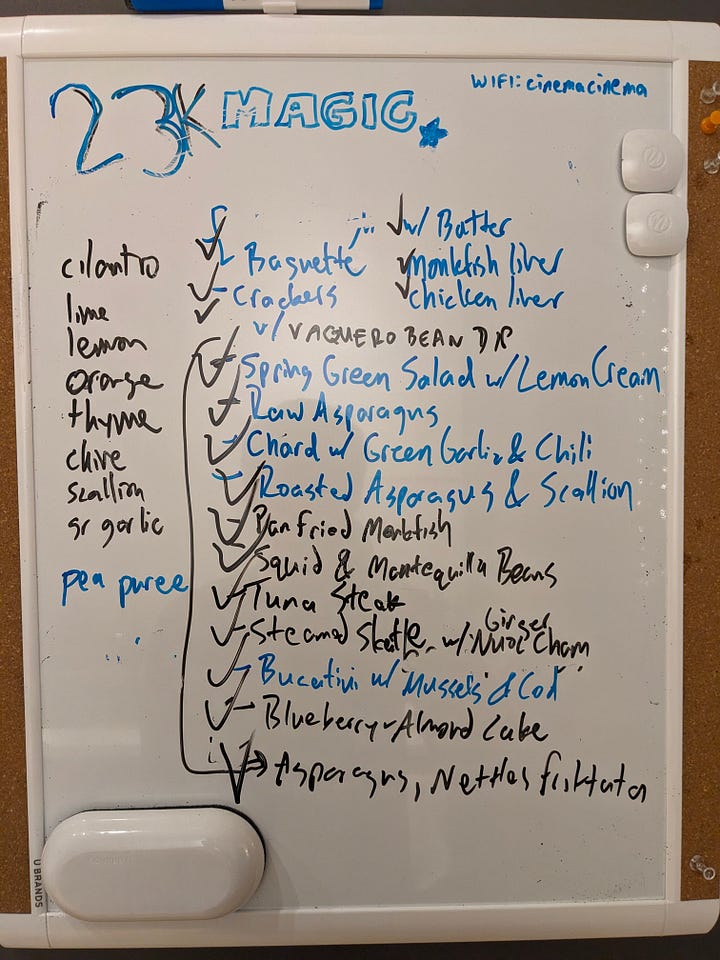 WIFI: cinemacinema
23K MAGIC
w/ Butter
Baguette
monkfish liver
Crackers
chicken liver
w/ VAQUERO BEAN DIP
Spring Green Salad w/ Lemon Cream
Raw Asparagus
Chard w/ Green Garlic & Chili
Roasted Asparagus & Scallion
Pan fried Monkfish
Squid & Mantequilla Beans
Tuna Steak
Steamed Skate w/ Ginger Nuoc Cham
Bucatini w/ Mussels & Cod
Blueberry-Almond Cake
Asparagus, Nettles frittata
cilantro
lime
lemon
orange
thyme
chive
scallion
gr garlic
pea puree
U BRANDS